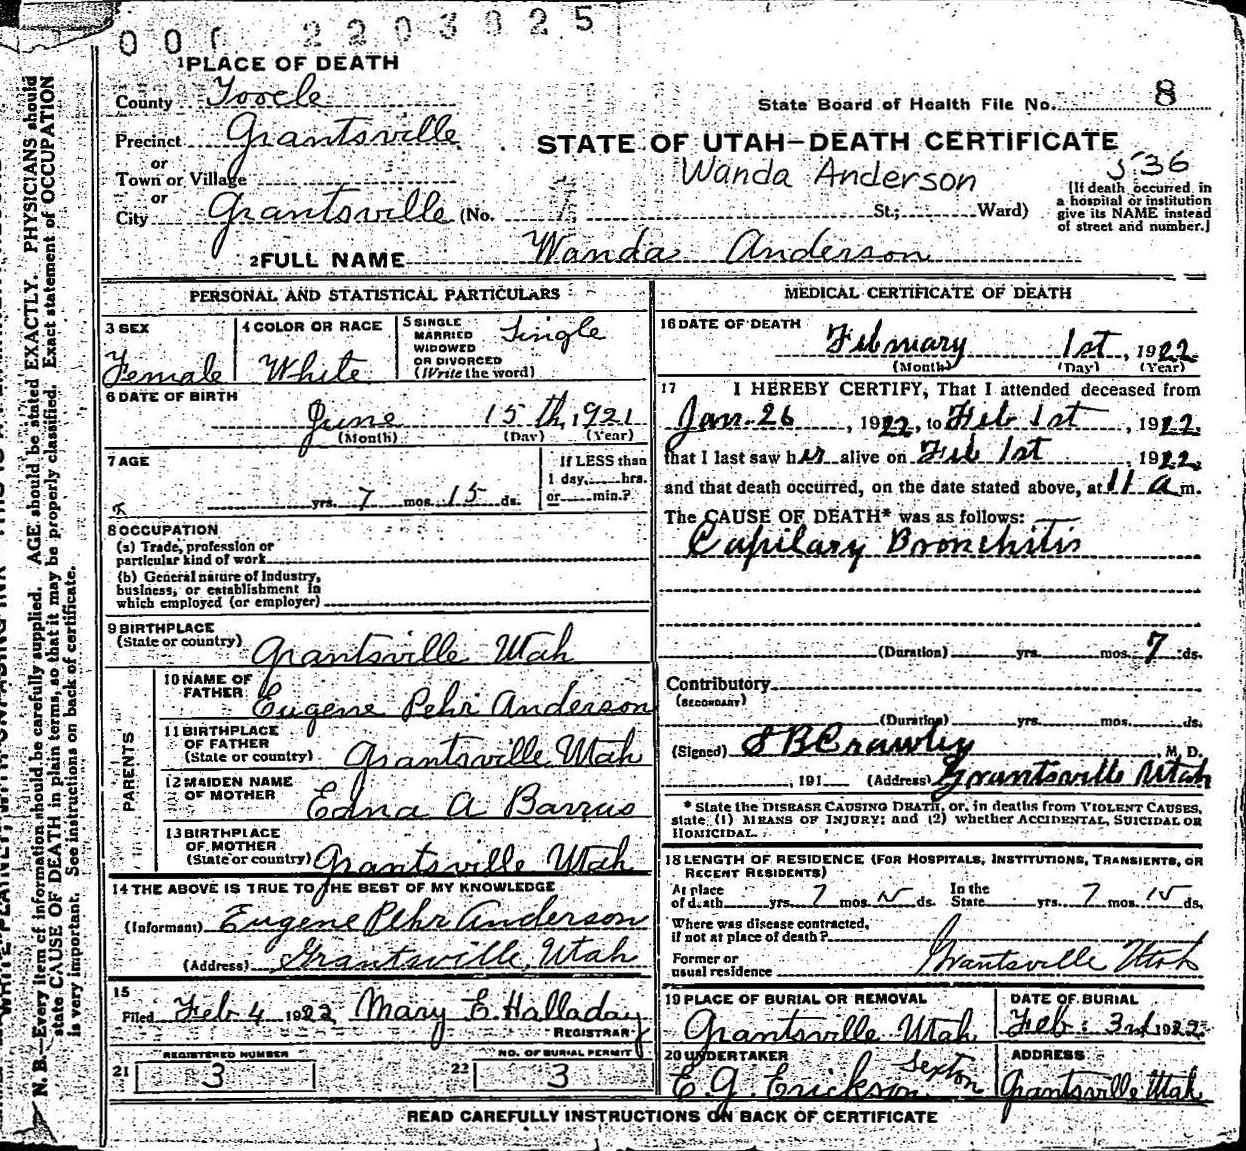 000 2203825
1 PLACE OF DEATH
County Tooele
State Board of Health File No. 8
Precinct Grantsville
STATE OF UTAH—DEATH CERTIFICATE
or
Town or Village
Wanda Anderson
536
or
City Grantsville (No. St.; Ward)
[If death occurred in
a hospital or institution
give its NAME instead
of street and number.]
2 FULL NAME Wanda Anderson
PERSONAL AND STATISTICAL PARTICULARS
3 SEX
Female
4 COLOR OR RACE
White
5 SINGLE
MARRIED
WIDOWED
OR DIVORCED
(Write the word)
Single
6 DATE OF BIRTH
June 15th, 1921
(Month) (Day) (Year)
7 AGE
yrs. 7 mos. 15 ds.
If LESS than
1 day, hrs.
or min.?
8 OCCUPATION
(a) Trade, profession or
particular kind of work
(b) General nature of Industry,
business, or establishment in
which employed (or employer)
9 BIRTHPLACE
(State or country) Grantsville Utah
PARENTS
10 NAME OF
FATHER Eugene Pehr Anderson
11 BIRTHPLACE
OF FATHER
(State or country) Grantsville Utah
12 MAIDEN NAME
OF MOTHER Edna A Barrus
13 BIRTHPLACE
OF MOTHER
(State or country) Grantsville Utah
14 THE ABOVE IS TRUE TO THE BEST OF MY KNOWLEDGE
(Informant) Eugene Pehr Anderson
(Address) Grantsville, Utah
15
Filed Feb 4 1922 Mary E. Halladay
REGISTRAR
REGISTERED NUMBER
21 3
NO. OF BURIAL PERMIT
22 3
MEDICAL CERTIFICATE OF DEATH
16 DATE OF DEATH
February 1st, 1922
(Month) (Day) (Year)
17 I HEREBY CERTIFY, That I attended deceased from
Jan. 26, 1922, to Feb 1st, 1922,
that I last saw her alive on Feb 1st, 1922,
and that death occurred, on the date stated above, at 11 a m.
The CAUSE OF DEATH* was as follows:
Capilary Bronchitis
(Duration) yrs. mos. 7 ds.
Contributory
(SECONDARY)
(Duration) yrs. mos. ds.
(Signed) S B Crawley, M. D.
, 191 (Address) Grantsville Utah
* State the DISEASE CAUSING DEATH, or, in deaths from VIOLENT CAUSES,
state (1) MEANS OF INJURY; and (2) whether ACCIDENTAL, SUICIDAL OR
HOMICIDAL.
18 LENGTH OF RESIDENCE (FOR HOSPITALS, INSTITUTIONS, TRANSIENTS, OR
RECENT RESIDENTS)
At place
of death yrs. 7 mos. 15 ds.
In the
State yrs. 7 mos. 15 ds.
Where was disease contracted,
if not at place of death?
Former or
usual residence Grantsville Utah
19 PLACE OF BURIAL OR REMOVAL
Grantsville Utah
DATE OF BURIAL
Feb. 3rd 1922
20 UNDERTAKER
E. G. Erickson Sexton
ADDRESS
Grantsville Utah
READ CAREFULLY INSTRUCTIONS ON BACK OF CERTIFICATE
N. B.—Every item of information should be carefully supplied. AGE should be stated EXACTLY. PHYSICIANS should
state CAUSE OF DEATH in plain terms, so that it may be properly classified. Exact statement of OCCUPATION
is very important. See instructions on back of certificate.